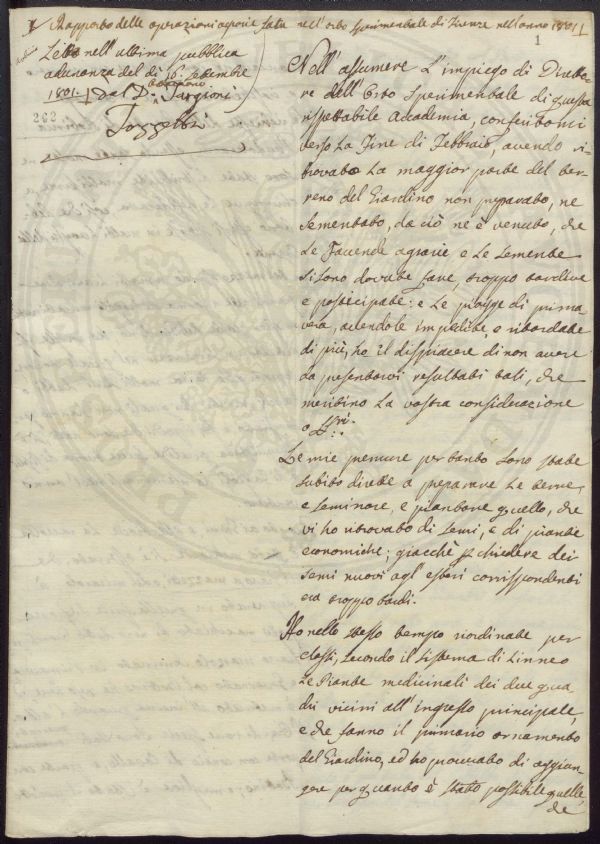 Rapporto delle operazioni agrarie fatte nell'orto Sperimentale di Firenze nell'anno 1801
1
Letto nell'ultima pubblica
adunanza del dì 16. Settembre
1801. Dal Dr. Ottaviano Targioni
Tozzetti
232
Nell'assumere l'impiego di Diretto=
re dell'Orto Sperimentale di questa
rispettabile Accademia, conferitomi
verso la fine di Febbraio, avendo ri=
trovato la maggior parte del ter=
reno del Giardino non preparato, ne
sementato, da ciò nè è venuto, che
le faccende agrarie e le sementa
si sono dovute fare, troppo tardive
e posticipate: e le piogge di prima
vera, avendole impedite, o ritardate
di più, ho il dispiacere di non avere
da presentarvi resultati tali, che
meritino la vostra considerazione
o S.ri.
Le mie premure per tanto sono state
subito dirette a preparare le terre,
e seminare, e piantare quello, che
vi ho ritrovato di semi, e di piante
economiche; giacchè p chiedere dei
semi nuovi agl'esteri corrispondenti
era troppo tardi.
Ho nello stesso tempo riordinate per
classi, secondo il sistema di Linneo
le Piante medicinali dei due qua
dri vicini all'ingresso principale,
e che fanno il primario ornamento
del Giardino, ed ho procurato di aggiun=
gere per quanto è stato possibile quelle,
che